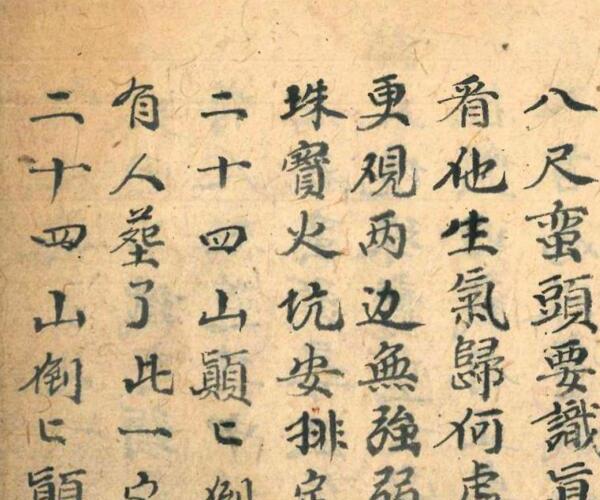 八尺蛮頭要識真
看他生氣歸何处
更硯两边無強弱
珠寶火坑安排定
二十四山顛〻倒
有人塟了此一穴
二十四山倒〻顛